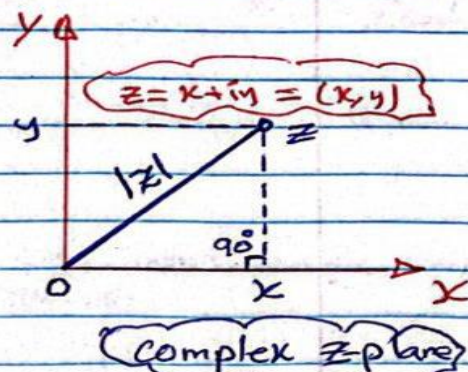 Y
z = x+iy = (x,y)
y
z
|z|
90°
O
x
X
complex z-plane